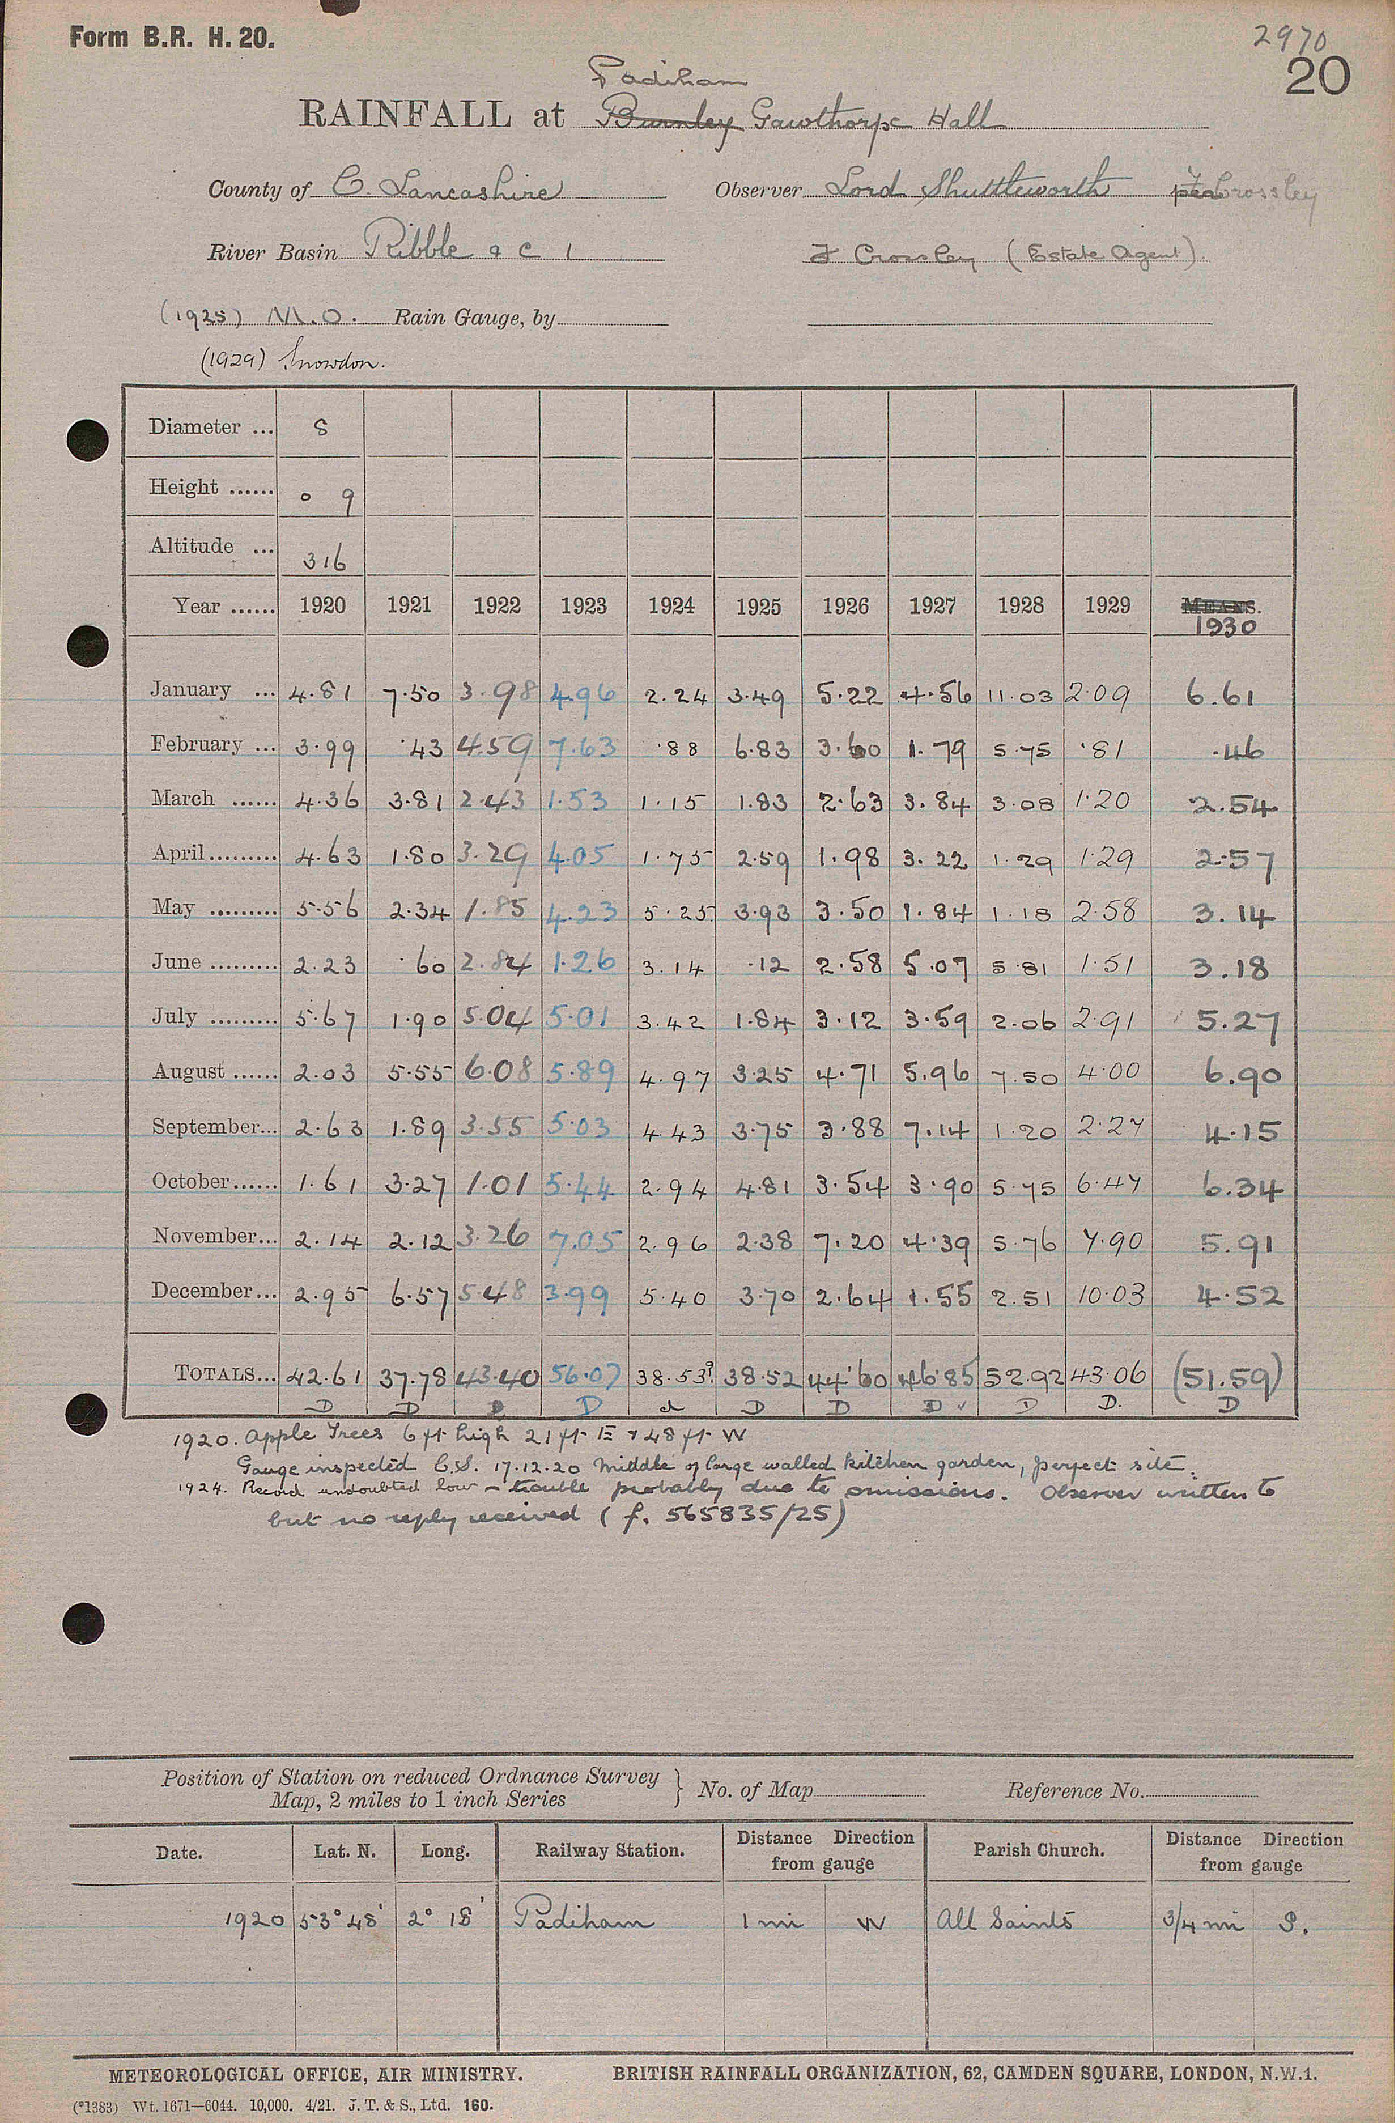 Form B.R. H. 20.
2970
20
Padiham
RAINFALL at Burnley Gawthorpe Hall
County of C. Lancashire Observer Lord Shuttleworth per Crossley
River Basin Ribble & c 1 F Crossley (Estate Agent).
(1925) M.O. Rain Gauge, by
(1929) Snowdon.
Diameter ... 8
Height ...... 0 9
Altitude ... 316
Year ...... 1920 1921 1922 1923 1924 1925 1926 1927 1928 1929 MEANS.
1930
January ... 4.81 7.50 3.98 4.96 2.24 3.49 5.22 4.56 11.03 2.09 6.61
February ... 3.99 .43 4.59 7.63 .88 6.83 3.60 1.79 5.75 .81 .46
March ...... 4.36 3.81 2.43 1.53 1.15 1.83 2.63 3.84 3.08 1.20 2.54
April ......... 4.63 1.80 3.29 4.05 1.75 2.59 1.98 3.22 1.29 1.29 2.57
May ......... 5.56 2.34 1.85 4.23 5.25 3.93 3.50 1.84 1.18 2.58 3.14
June ......... 2.23 .60 2.84 1.26 3.14 .12 2.58 5.07 5.81 1.51 3.18
July ......... 5.67 1.90 5.04 5.01 3.42 1.84 3.12 3.59 2.06 2.91 5.27
August ...... 2.03 5.55 6.08 5.89 4.97 3.25 4.71 5.96 7.50 4.00 6.90
September... 2.63 1.89 3.55 5.03 4.43 3.75 3.88 7.14 1.20 2.27 4.15
October ...... 1.61 3.27 1.01 5.44 2.94 4.81 3.54 3.90 5.75 6.47 6.34
November... 2.14 2.12 3.26 7.05 2.96 2.38 7.20 4.39 5.76 7.90 5.91
December... 2.95 6.57 5.48 3.99 5.40 3.70 2.64 1.55 2.51 10.03 4.52
TOTALS... 42.61 37.78 43.40 56.07 38.53? 38.52 44.60 46.85 52.92 43.06 (51.59)
D D D D d D D D ✓ D D. D
1920. Apple Trees 6 ft high 21 ft E & 48 ft W
Gauge inspected C.S. 17.12.20 Middle of large walled kitchen garden, perfect site.
1924. Record undoubted low – trouble probably due to omissions. Observer written to
but no reply received (f. 565835/25)
Position of Station on reduced Ordnance Survey
Map, 2 miles to 1 inch Series } No. of Map Reference No.
Date. Lat. N. Long. Railway Station. Distance Direction from gauge Parish Church. Distance Direction from gauge
1920 53° 48' 2° 18' Padiham 1 mi W All Saints 3/4 mi S.
METEOROLOGICAL OFFICE, AIR MINISTRY. BRITISH RAINFALL ORGANIZATION, 62, CAMDEN SQUARE, LONDON, N.W.1.
(*1383) Wt. 1671—6044. 10,000. 4/21. J. T. & S., Ltd. 160.